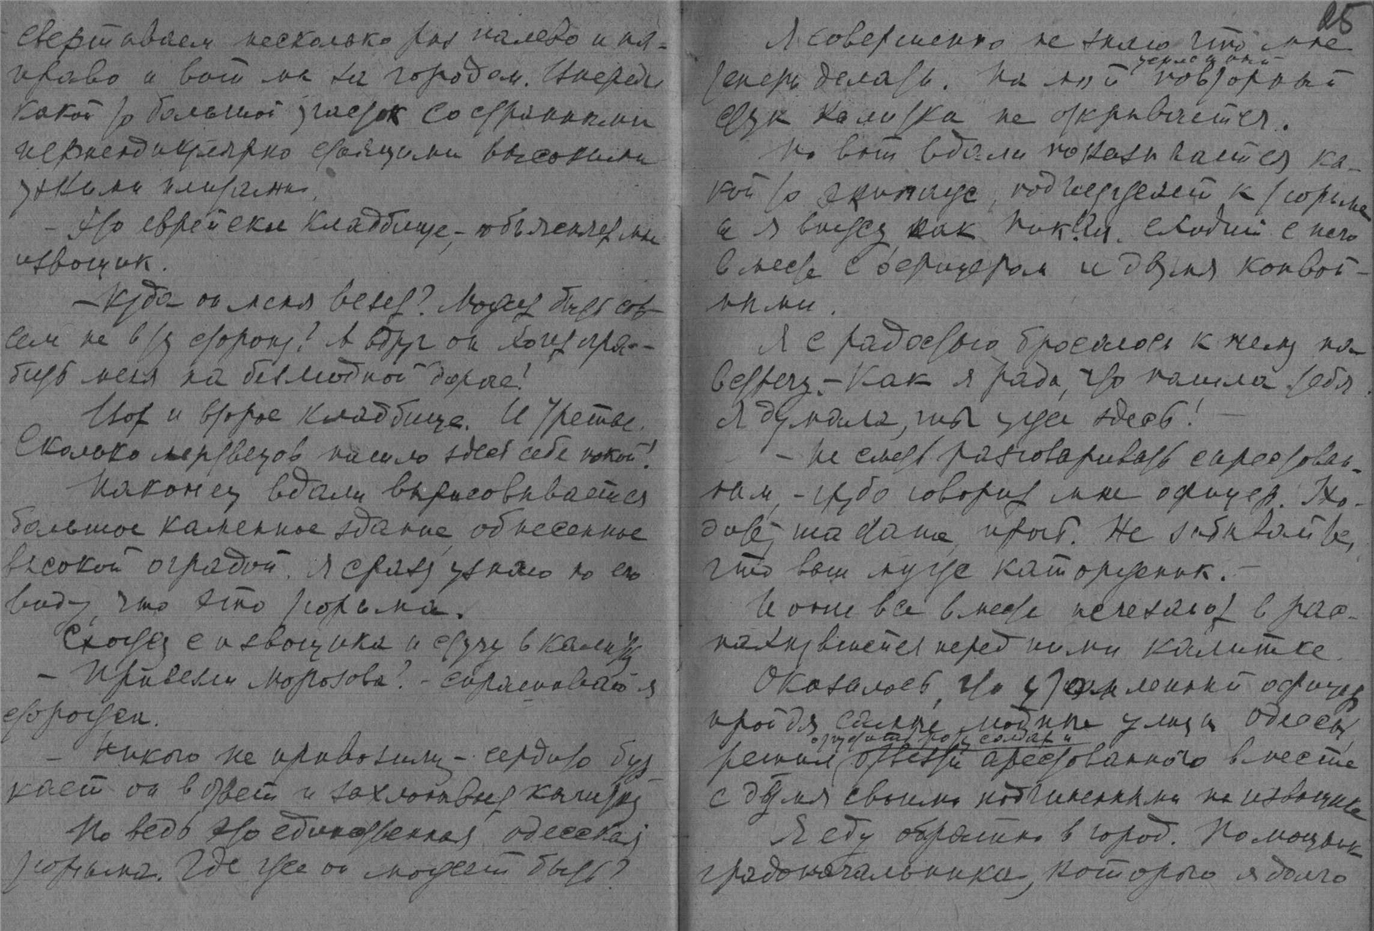 свертываем несколько раз налево и на-
право и вот мы за городом. Впереди
какой то большой участок со странными
перпендикулярно стоящими высокими
узкими плитами.
- Это еврейское кладбище, - объясняет мне
извощик.
- Куда он меня везет? Может быть сов-
сем не в ту сторону? А вдруг он хочет огра-
бить меня на безлюдной дороге!
Вот и второе кладбище. И третье.
Сколько мертвецов нашло здесь себе покой!
Наконец вдали вырисовывается
большое каменное здание, обнесенное
высокой оградой. Я сразу узнаю по его
виду, что это тюрьма.
Схожу с извощика и стучу в калитку
- Привезли Морозова? - спрашиваю я
сторожа.
- Никого не привозили - сердито бур-
кает он в ответ и захлопывает калитку
Но ведь это единственная одесская
тюрьма. Где же он может быть?
25
Я совершенно не знаю что мне
теперь делать. На мой повторный
стук калитка не открывается.
Но вот вдали показывается ка-
кой то экипаж, подъезжает к тюрьме
и я вижу, как Ник. Ал. сходит с него
вместе с офицером и двумя конвой-
ными.
Я с радостью бросаюсь к нему на-
встречу. - Как я рада, что нашла тебя.
Я думала, ты уже здесь! -
- Не сметь разговаривать с арестован-
ным, - грубо говорит мне офицер. Ухо-
дите, madame, прочь. Не забывайте,
что ваш муж каторжник. -
И они все вместе исчезают в рас-
пахнувшейся перед ними калитке.
Оказалось, что утомленный офицер
пройдя самые людные улицы Одессы,
решил отвезти арестованного вместе
с двумя своими подчиненными на извощике
Я еду обратно в город. Помощник
градоначальника, которого я долго